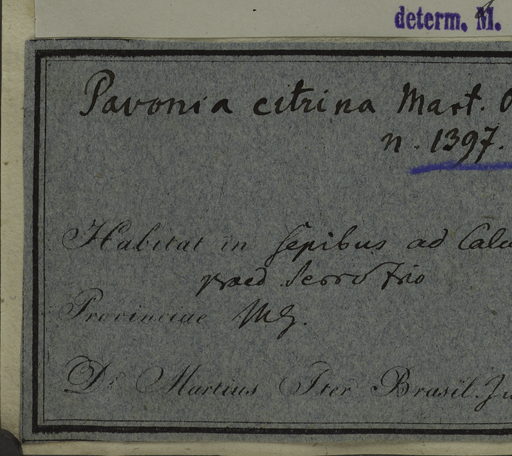 determ. M.
Pavonia citrina Mart.
n. 1397.
Habitat in sepibus ad
praed Serro frio
Provinciae MG.
Dr Martius Iter Brasil.